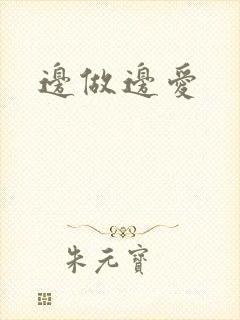 邊做邊愛
朱元寶